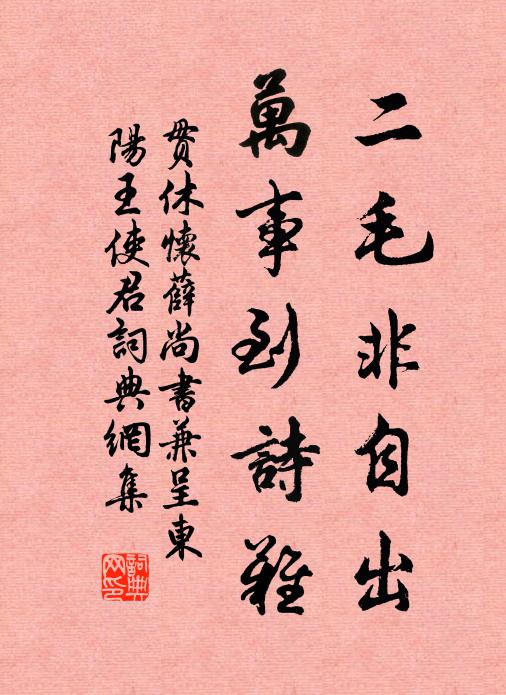 二毛非自出
萬事到詩難
貫休懷薛尚書兼呈東
陽王使君詞典網集
詞典
网印